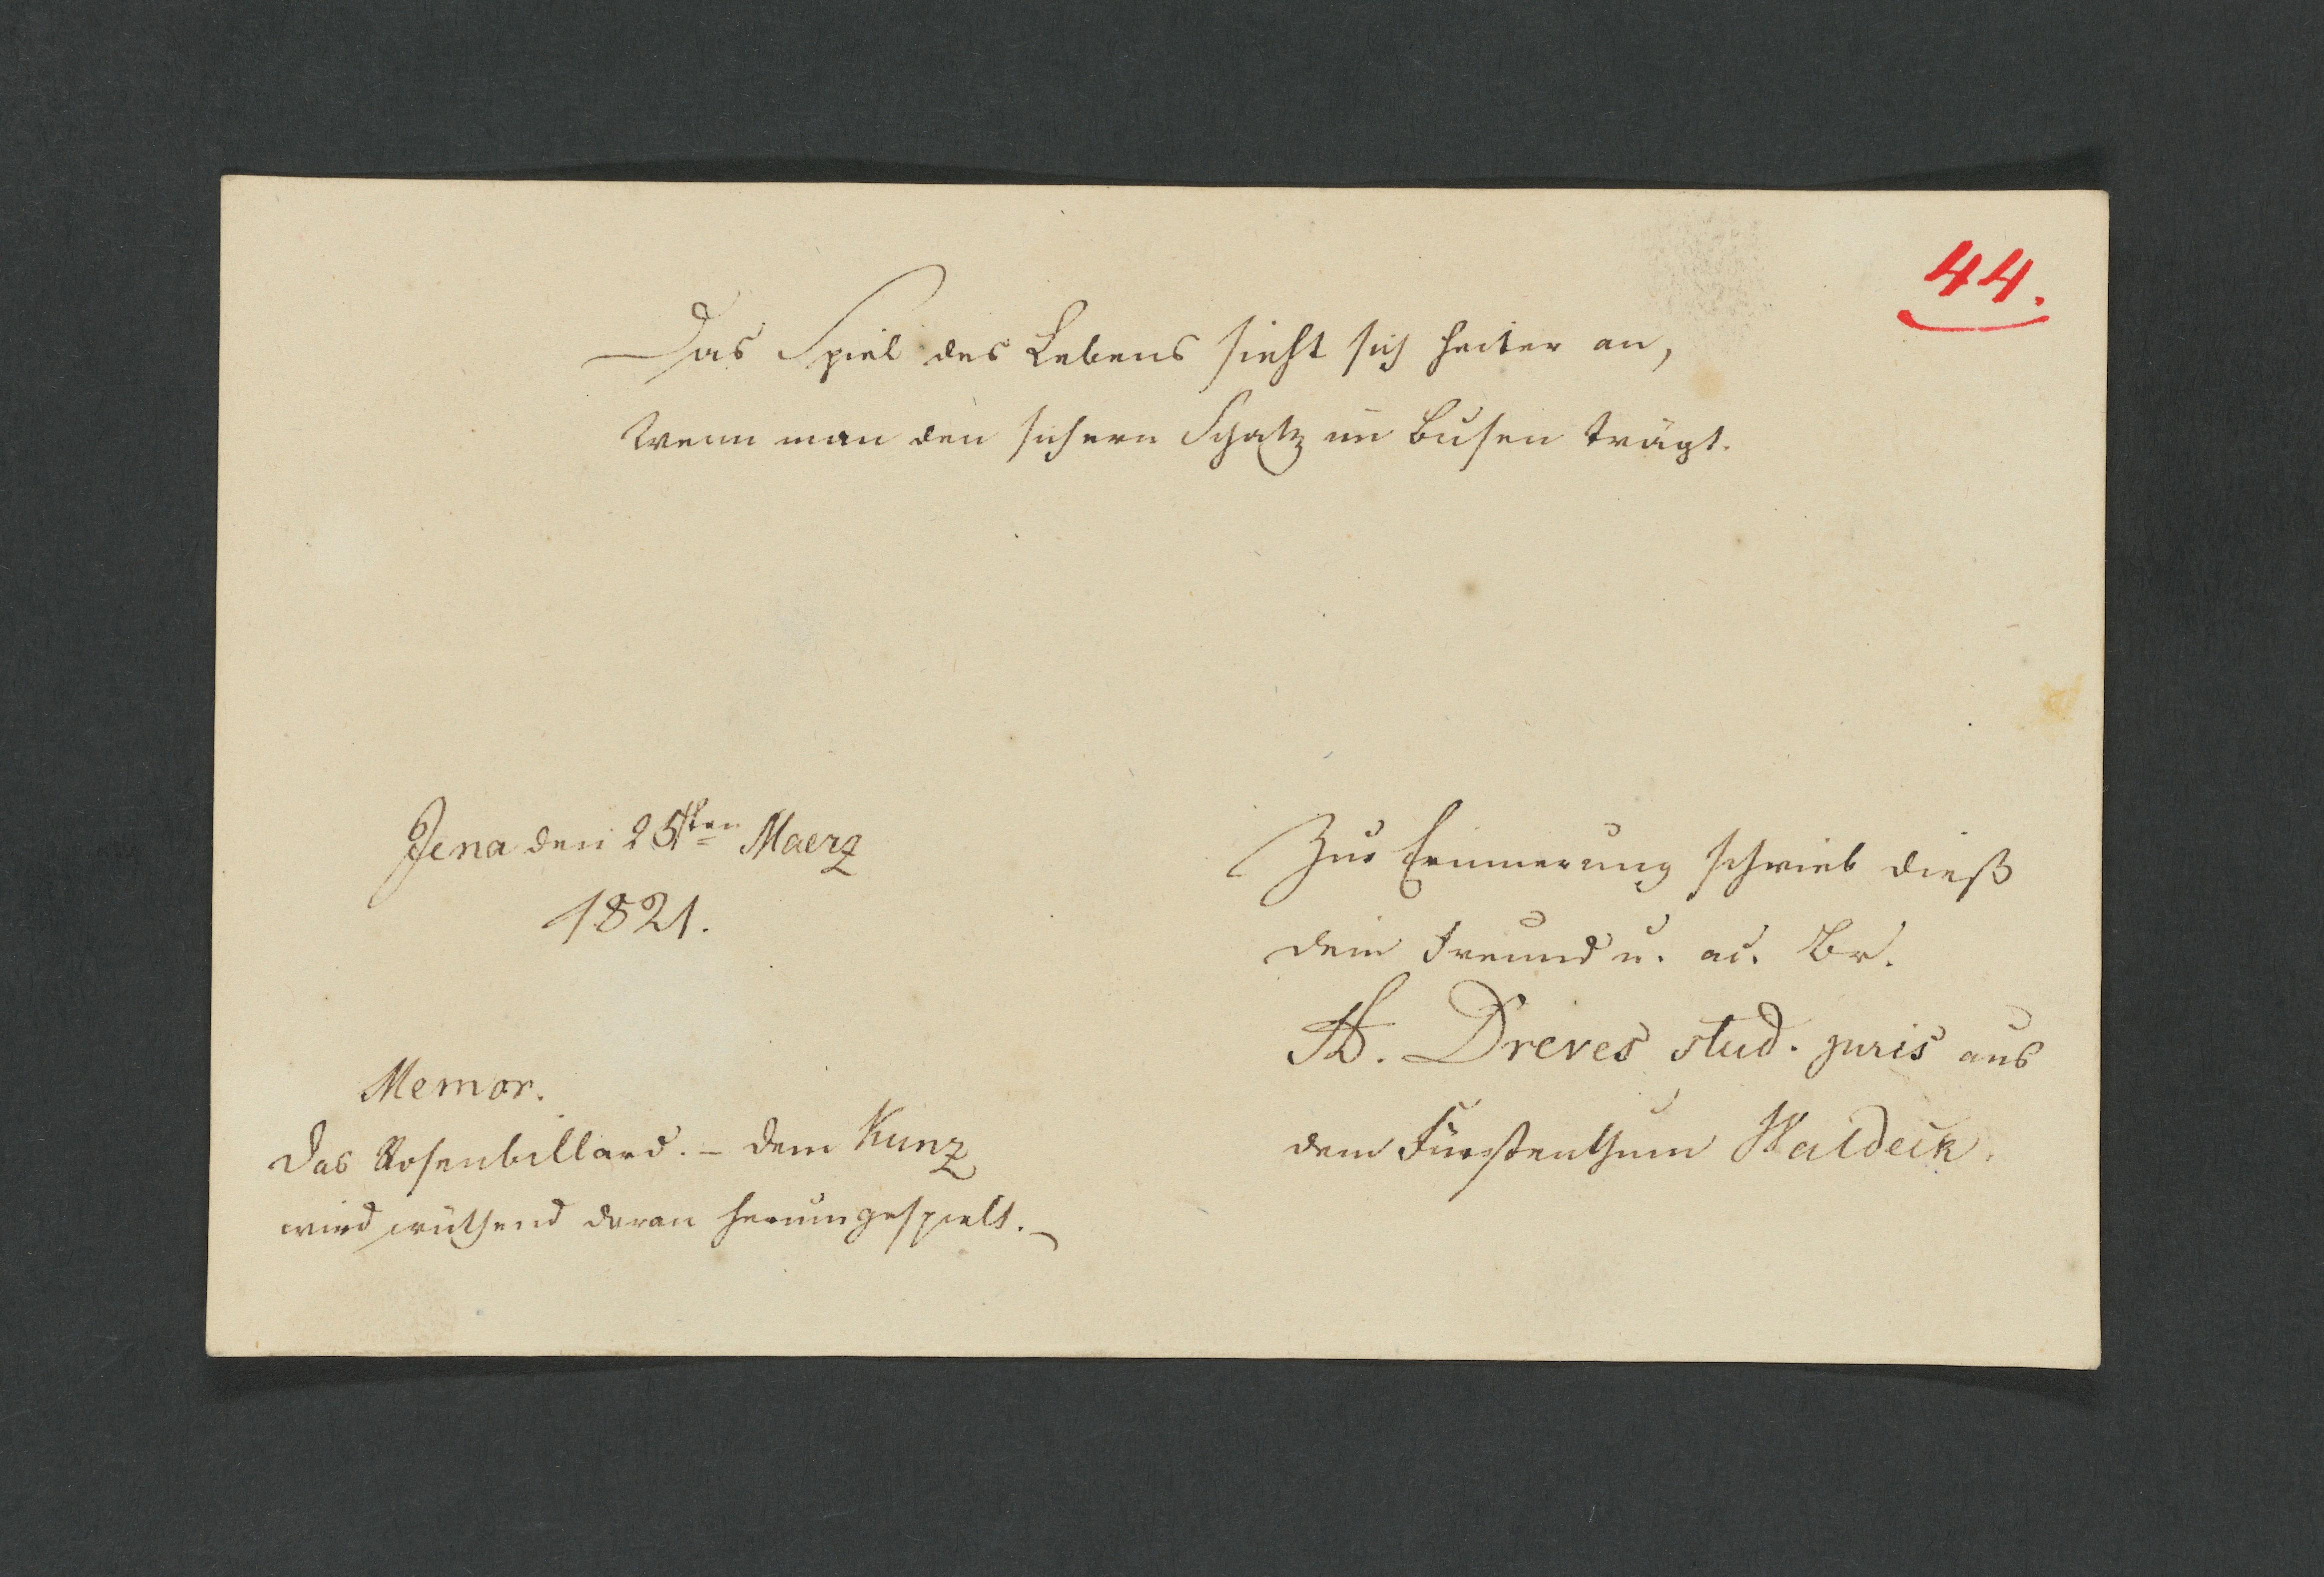 44.
Das Spiel des Lebens sieht sich heiter an,
Wenn man den sichern Schatz im Busen trägt.
Jena den 25sten Maerz
1821.
Memor.
Das Rosenbillard. - dem Kunz
wird wüthend daran herumgespielt. -
Zur Erinnerung schrieb dieß
dein Freund u. ac. Br.
Dreves stud. juris aus
dem Fürstenthum Waldeck.